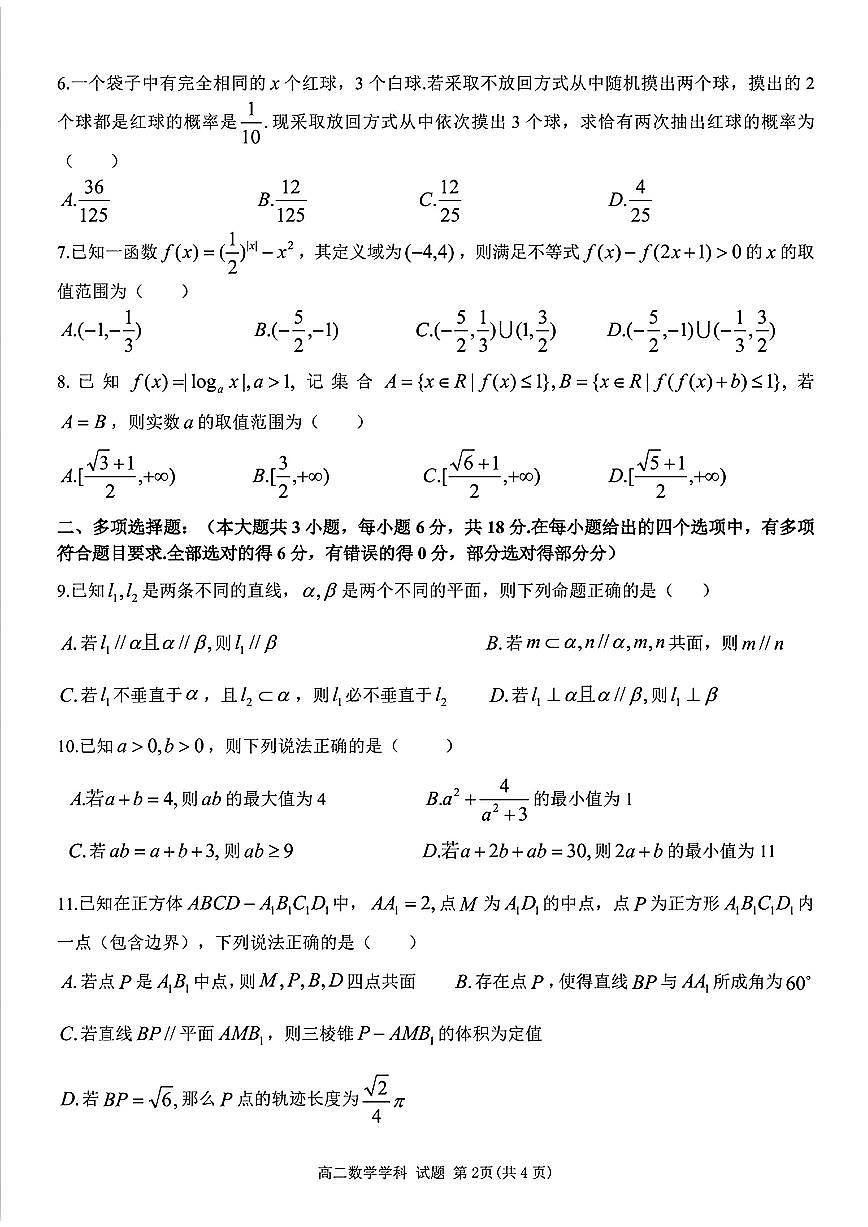 6.一个袋子中有完全相同的 x 个红球，3 个白球.若采取不放回方式从中随机摸出两个球，摸出的 2
个球都是红球的概率是 1/10. 现采取放回方式从中依次摸出 3 个球，求恰有两次抽出红球的概率为
（ ）
A. 36/125 B. 12/125 C. 12/25 D. 4/25
7.已知一函数 f(x) = (1/2)^|x| − x²，其定义域为(−4,4)，则满足不等式 f(x) − f(2x+1) > 0 的 x 的取
值范围为（ ）
A.(−1,−1/3) B.(−5/2,−1) C.(−5/2,1/3)∪(1,3/2) D.(−5/2,−1)∪(−1/3,3/2)
8. 已 知 f(x)=|log_a x|,a>1, 记 集 合 A={x∈R|f(x)≤1},B={x∈R|f(f(x)+b)≤1}, 若
A=B，则实数 a 的取值范围为（ ）
A.[(√3+1)/2,+∞) B.[3/2,+∞) C.[(√6+1)/2,+∞) D.[(√5+1)/2,+∞)
二、多项选择题：（本大题共 3 小题，每小题 6 分，共 18 分.在每小题给出的四个选项中，有多项
符合题目要求.全部选对的得 6 分，有错误的得 0 分，部分选对得部分分）
9.已知 l₁,l₂ 是两条不同的直线，α,β 是两个不同的平面，则下列命题正确的是（ ）
A.若 l₁//α且α//β,则 l₁//β B.若 m⊂α,n//α,m,n 共面，则 m//n
C.若 l₁ 不垂直于 α，且 l₂⊂α，则 l₁ 必不垂直于 l₂ D.若 l₁⊥α且α//β,则 l₁⊥β
10.已知 a>0,b>0，则下列说法正确的是（ ）
A.若a+b=4,则 ab 的最大值为 4 B.a²+4/(a²+3) 的最小值为 1
C.若 ab=a+b+3,则 ab≥9 D.若a+2b+ab=30,则 2a+b 的最小值为 11
11.已知在正方体 ABCD−A₁B₁C₁D₁ 中，AA₁=2,点 M 为 A₁D₁ 的中点，点 P 为正方形 A₁B₁C₁D₁ 内
一点（包含边界），下列说法正确的是（ ）
A.若点 P 是 A₁B₁ 中点,则 M,P,B,D 四点共面 B.存在点 P，使得直线 BP 与 AA₁ 所成角为 60°
C.若直线 BP//平面 AMB₁，则三棱锥 P−AMB₁ 的体积为定值
D.若 BP=√6,那么 P 点的轨迹长度为 √2/4 π
高二数学学科 试题 第 2页(共 4 页)